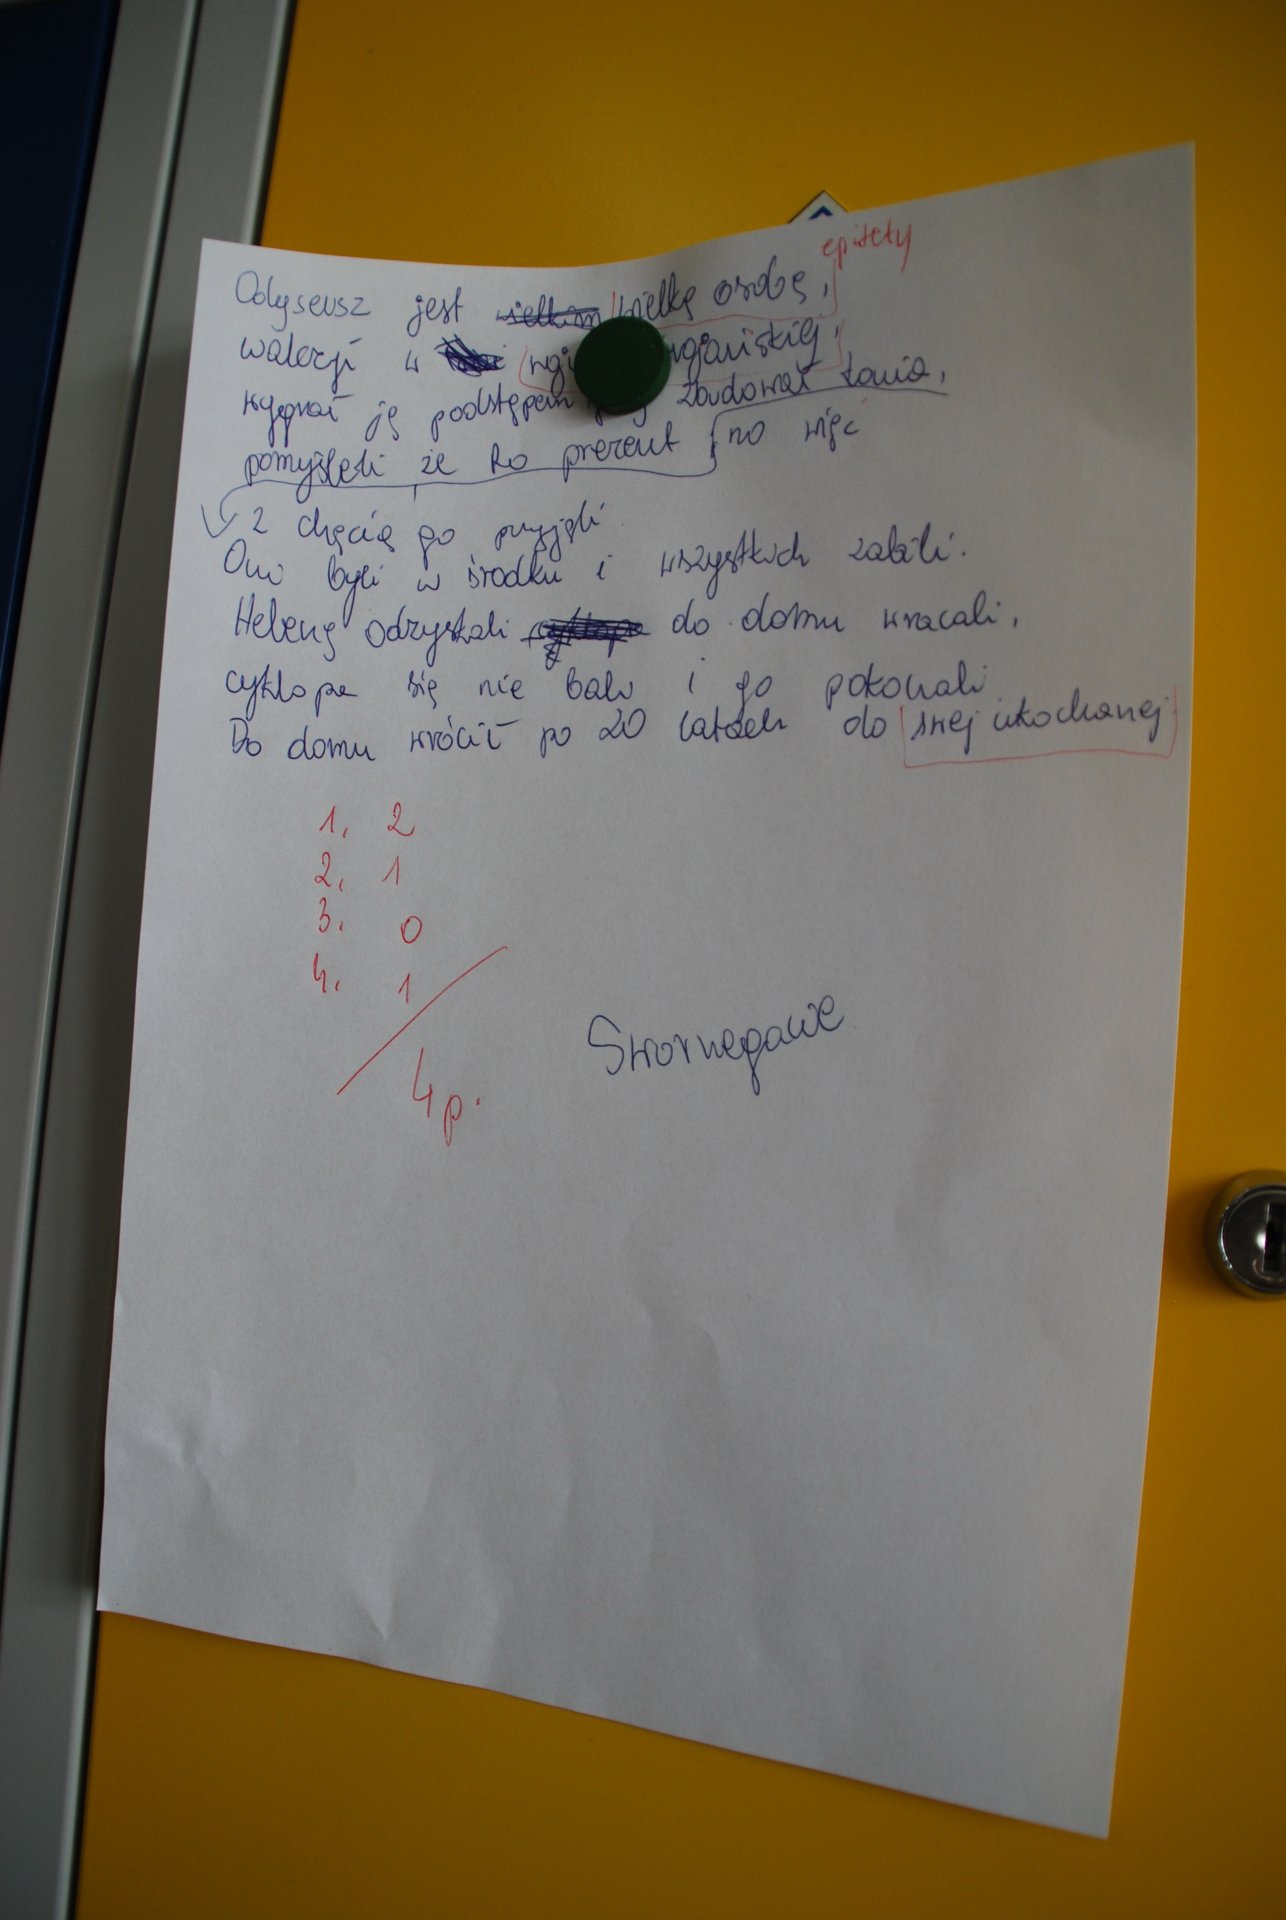 epitety
Odyseusz jest wielką osobą,
walczył w
wygrał ją podstępem zbudował konia,
pomyśleli że to prezent no więc
z chęcią go przyjęli
Oni byli w środku i wszystkich zabili.
Helenę odzyskali do domu wracali,
cyklopa się nie bali i go pokonali
Do domu wrócił po 20 latach do swej ukochanej
1. 2
2. 1
3. 0
4. 1
4 p.